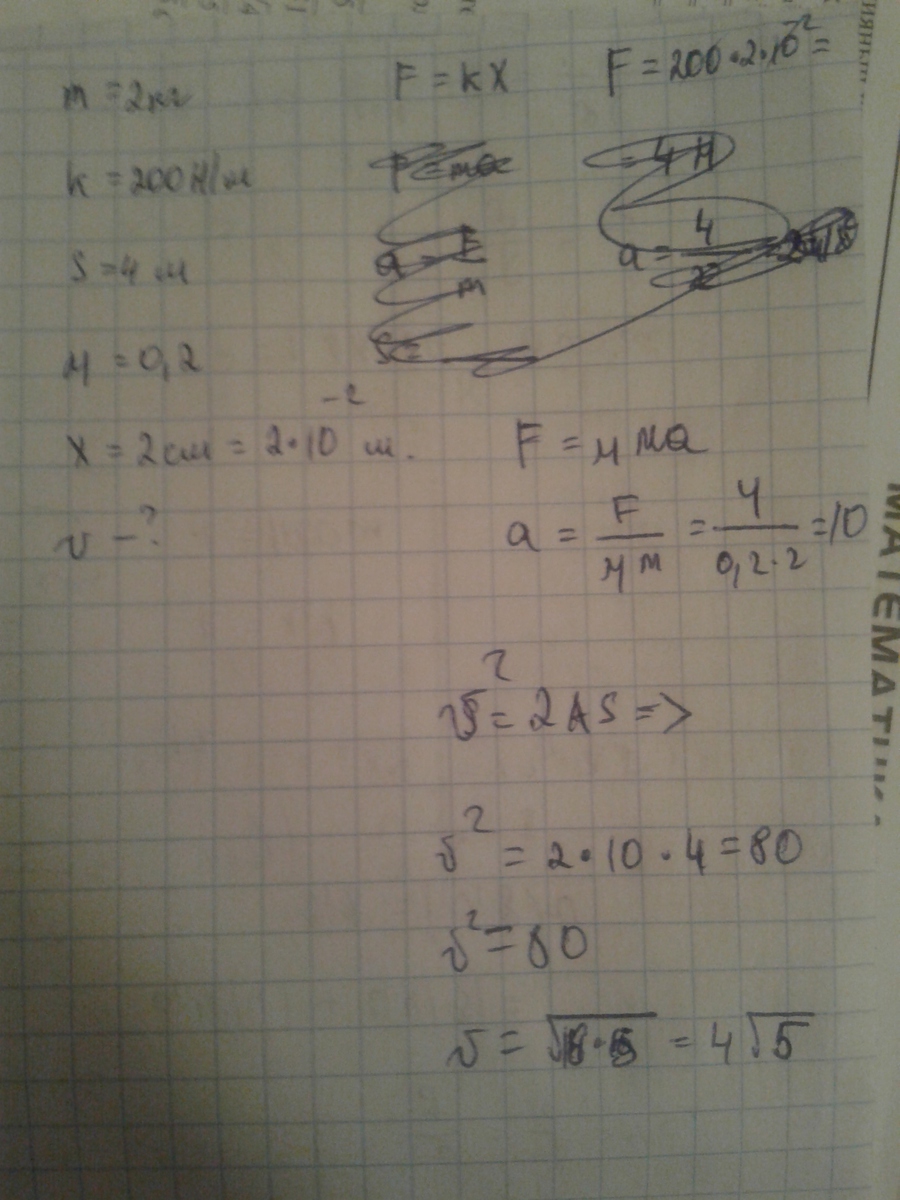 m = 2кг
k = 200 Н/м
S = 4 м
μ = 0,2
x = 2 см = 2·10⁻² м.
v – ?
F = kx
F = ma
a = F/m
S =
F = 200·2·10⁻² =
= 4 Н
a = 4/2
F = μma
a = F/μm = 4/0,2·2 = 10
v² = 2AS =>
v² = 2·10·4 = 80
v² = 80
v = √16·5 = 4√5
МАТЕМАТИК